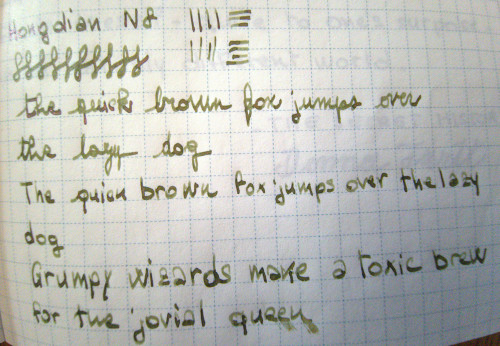 Hongdian N8
the quick brown fox jumps over
the lazy dog
The quick brown fox jumps over the lazy
dog
Grumpy wizards make a toxic brew
for the jovial queen